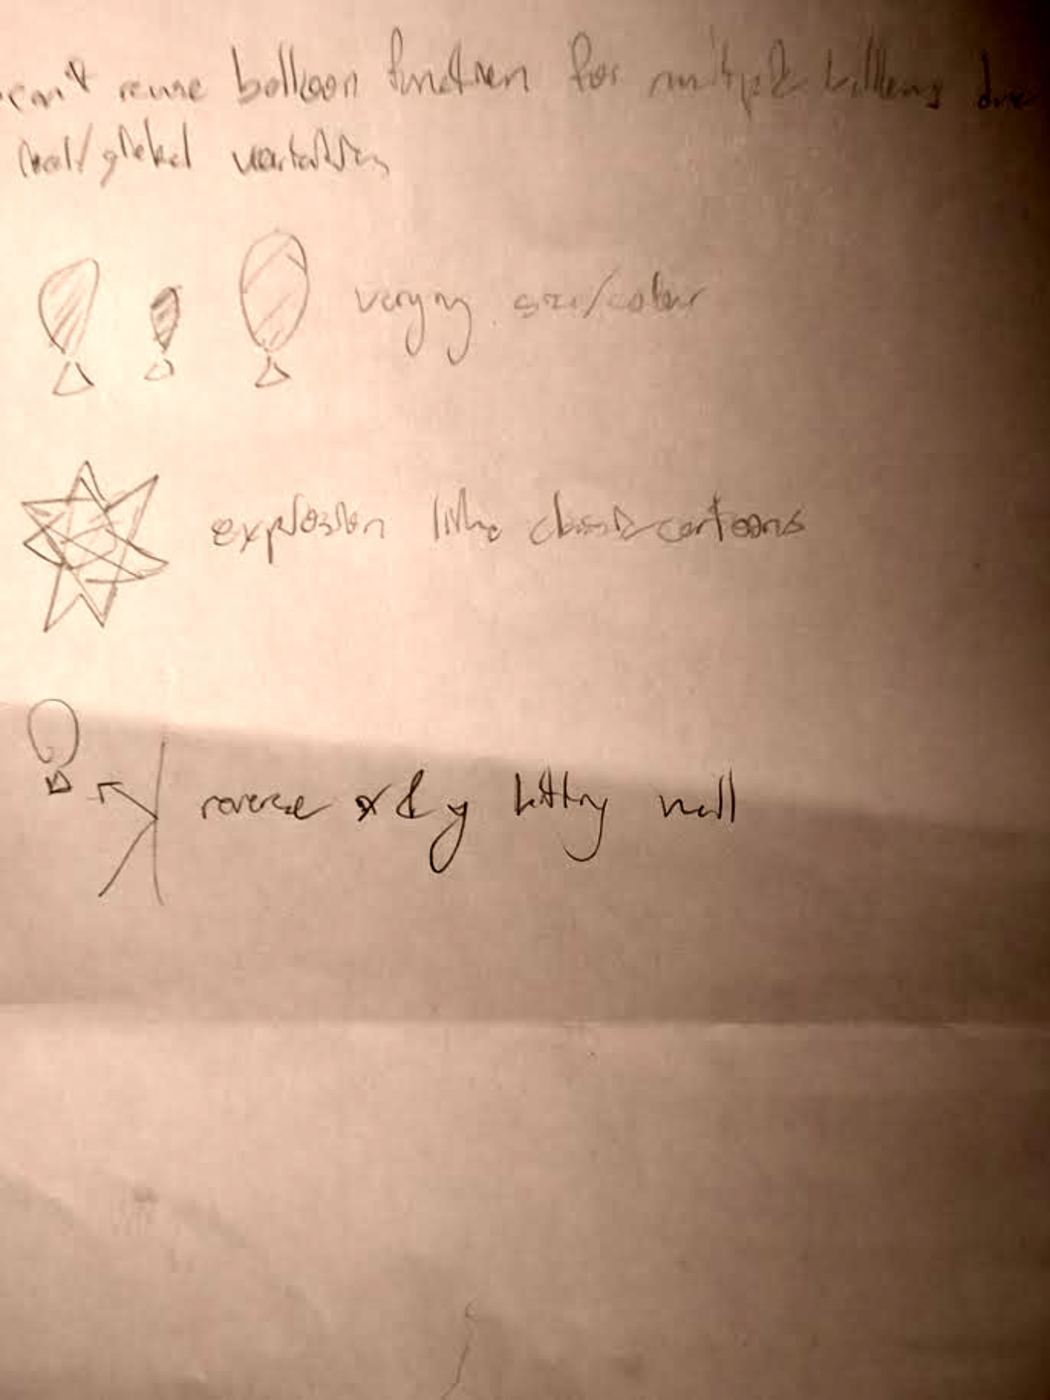 can't reuse balloon function for multiple balloons due
local/global variables
varying size/colour
explosion like classic cartoons
reverse x & y hitting wall